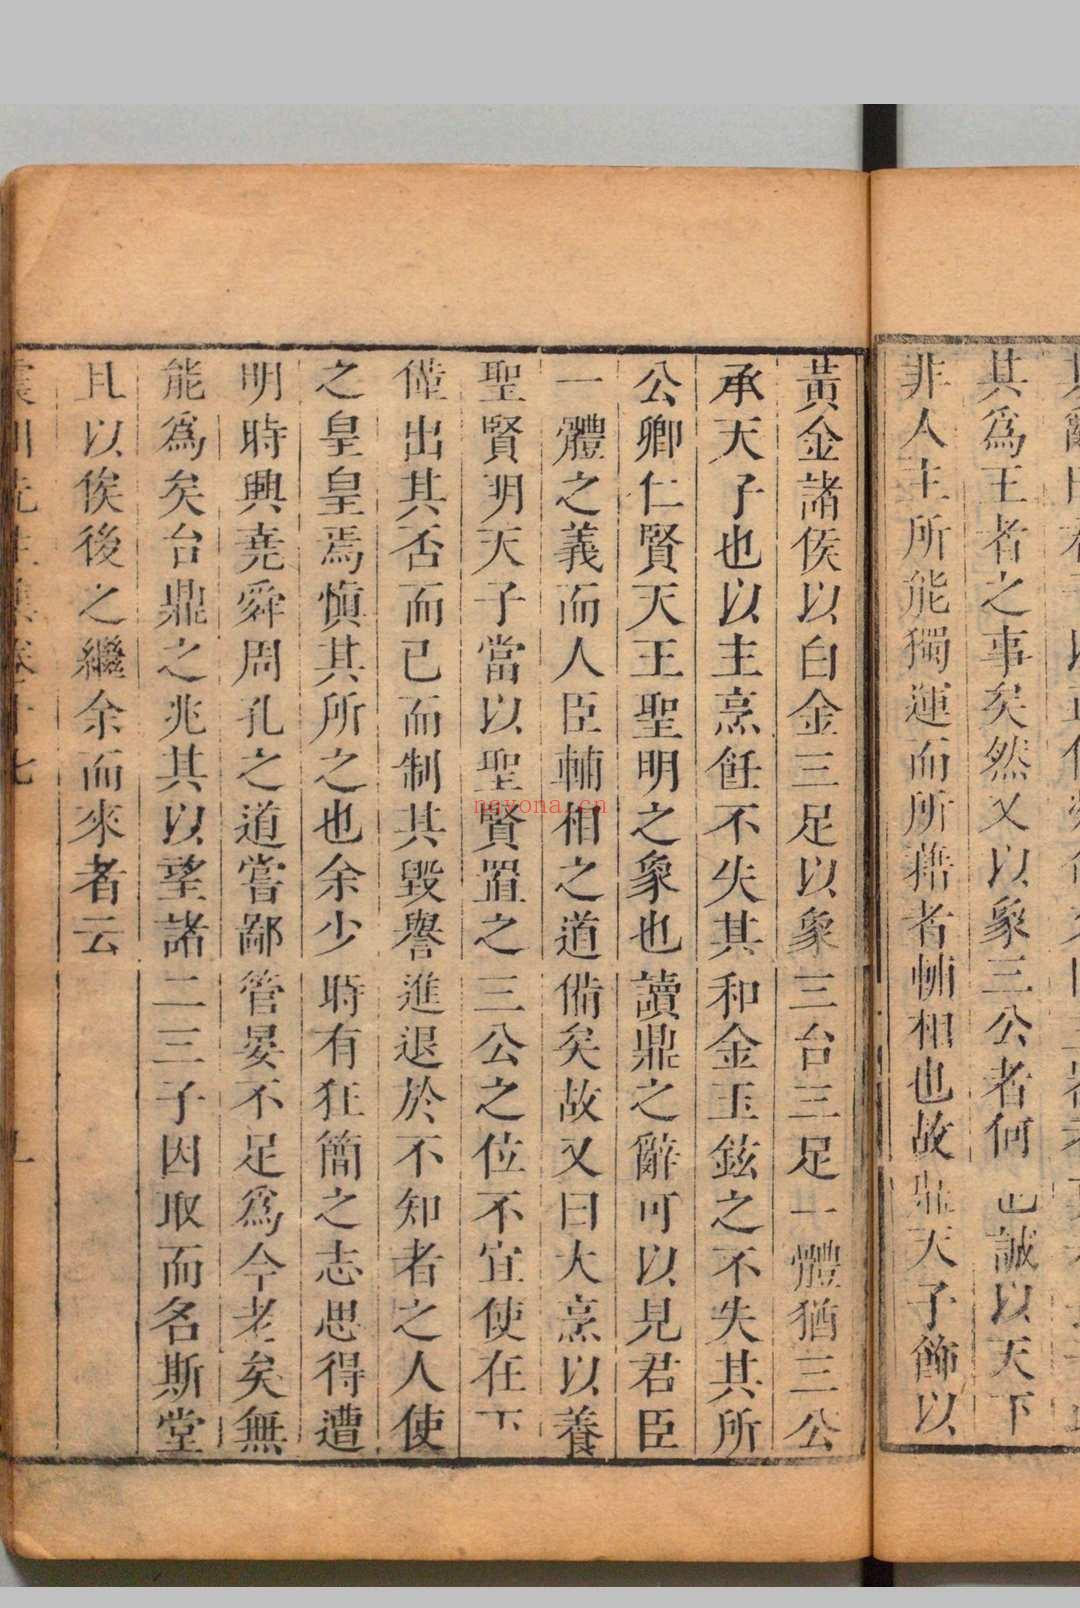 其爲王者之事矣然又以象三公者何也誠以天下
非人主所能獨運而所藉者輔相也故鼎天子飾以
黃金諸侯以白金三足以象三台三足一體猶三公
承天子也以主烹飪不失其和金玉鉉之不失其所
公卿仁賢天王聖明之象也讀鼎之辭可以見君臣
一體之義而人臣輔相之道備矣故又曰大烹以養
聖賢明天子當以聖賢置之三公之位不宜使在下
僅出其否而已而制其毀譽進退於不知者之人使
之皇皇焉愼其所之也余少時有狂簡之志思得遭
明時興堯舜周孔之道嘗鄙管晏不足爲今老矣無
能爲矣台鼎之兆其以望諸二三子因取而名斯堂
且以俟後之繼余而來者云
nayona.cn